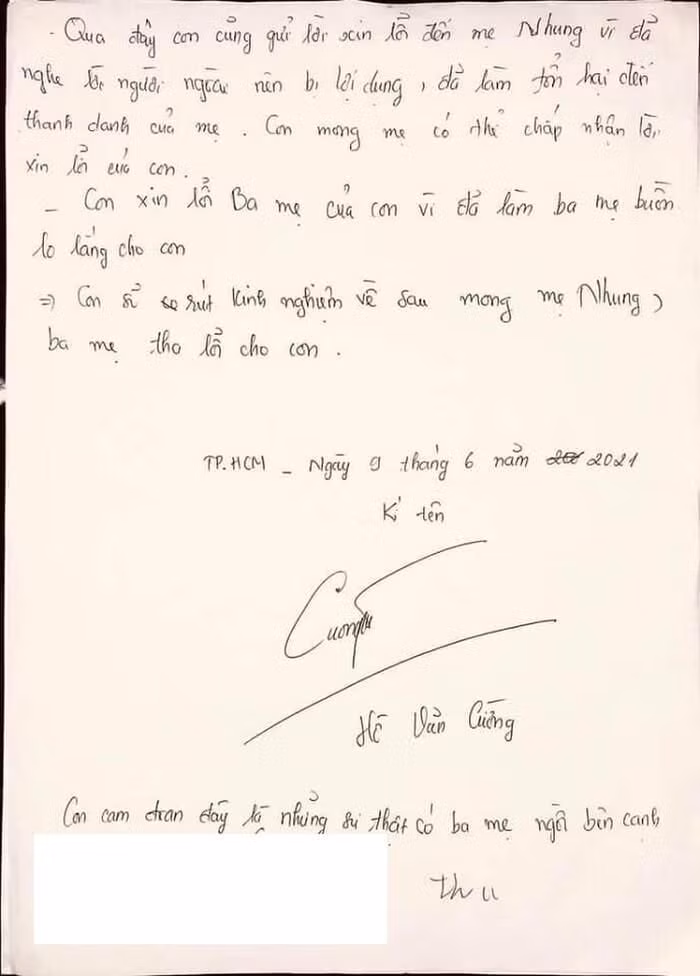 - Qua đây con củng gửi lời xin lổi đến mẹ Nhung vì đả
nghe lời người ngoài nên bị lợi dụng, đả làm tổn hại đến
thanh danh của mẹ. Con mong mẹ có thể chấp nhận lời
xin lổi của con.
- Con xin lổi Ba mẹ của con vì đả làm ba mẹ buồn
lo lắng cho con
=> Con sẻ rút kinh nghiệm về sau mong mẹ Nhung,
ba mẹ tho lổi cho con.
TP.HCM - Ngày 9 tháng 6 năm 2021
Kí tên
Cuong
Hồ Văn Cường
Con cam đoan đây là những sự thật có ba mẹ ngồi bên cạnh
thu